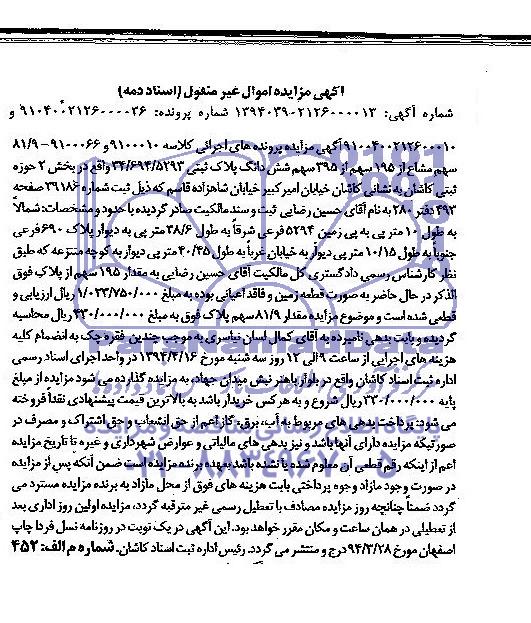 آگهی مزایده اموال غیر منقول (اسناد ذمه)
شماره آگهی: ۱۳۹۴۰۳۹۰۲۱۲۶۰۰۰۰۱۳ شماره پرونده: ۹۱۰۴۰۰۲۱۲۶۰۰۰۰۳۶ و
۹۱۰۰۴۰۰۲۱۲۶۰۰۰۰۱۰ آگهی مزایده پرونده های اجرائی کلاسه ۹۱۰۰۰۱۰ و ۹۱۰۰۰۶۶ - ۸۱/۹
سهم مشاع از ۱۹۵ سهم از ۳۹۵ سهم شش دانگ پلاک ثبتی ۳۴/۶۹۴/۵۲۹۳ واقع در بخش ۲ حوزه
ثبتی کاشان به نشانی کاشان خیابان امیرکبیر خیابان شاهزاده قاسم که ذیل ثبت شماره ۳۹۱۸۶ صفحه
۴۹۳ دفتر ۲۸۰ به نام آقای حسین رضایی ثبت و سند مالکیت صادر گردیده با حدود و مشخصات: شمالاً
به طول ۱۰ متر پی به پی زمین ۵۲۹۴ فرعی شرقاً به طول ۳۸/۶ متر پی به دیوار پلاک ۶۹۰ فرعی
جنوباً به طول ۱۰/۱۵ متر پی دیوار به خیابان غرباً به طول ۴۰/۴۵ متر پی دیوار به کوچه منتزعه که طبق
نظر کارشناس رسمی دادگستری کل مالکیت آقای حسین رضایی به مقدار ۱۹۵ سهم از پلاک فوق
الذکر در حال حاضر به صورت قطعه زمین و فاقد اعیانی بوده به مبلغ ۱/۰۳۳/۷۵۰/۰۰۰ ریال ارزیابی و
قطعی شده است و موضوع مزایده مقدار ۸۱/۹ سهم پلاک فوق به مبلغ ۴۳۰/۰۰۰/۰۰۰ ریال محاسبه
گردیده و بابت بدهی نامبرده به آقای کمال لسان نیاسری به موجب چندین فقره چک به انضمام کلیه
هزینه های اجرایی از ساعت ۹ الی ۱۲ روز سه شنبه مورخ ۱۳۹۴/۴/۱۶ در واحد اجرای اسناد رسمی
اداره ثبت اسناد کاشان واقع در بلوار باهنر نبش میدان جهاد، به مزایده گذارده می شود مزایده از مبلغ
پایه ۴۳۰/۰۰۰/۰۰۰ ریال شروع و به هر کس خریدار باشد به بالاترین قیمت پیشنهادی نقداً فروخته
می شود: پرداخت بدهی های مربوط به آب، برق، گاز اعم از حق انشعاب و حق اشتراک و مصرف در
صورتیکه مزایده دارای آنها باشد و نیز بدهی های مالیاتی و عوارض شهرداری و غیره تا تاریخ مزایده
اعم از اینکه رقم قطعی آن معلوم شده یا نشده باشد بعهده برنده مزایده است ضمن آنکه پس از مزایده
در صورت وجود مازاد وجوه پرداختی بابت هزینه های فوق از محل مازاد به برنده مزایده مسترد می
گردد ضمناً چنانچه روز مزایده مصادف با تعطیل رسمی غیر مترقبه گردد، مزایده اولین روز اداری بعد
از تعطیلی در همان ساعت و مکان مقرر خواهد بود. این آگهی در یک نوبت در روزنامه نسل فردا چاپ
اصفهان مورخ ۹۴/۳/۲۸ درج و منتشر می گردد. رئیس اداره ثبت اسناد کاشان. شماره م الف: ۴۵۲
ParsNamadData
۰۲۱-۸۸۳۴۹۶۷۰-۵